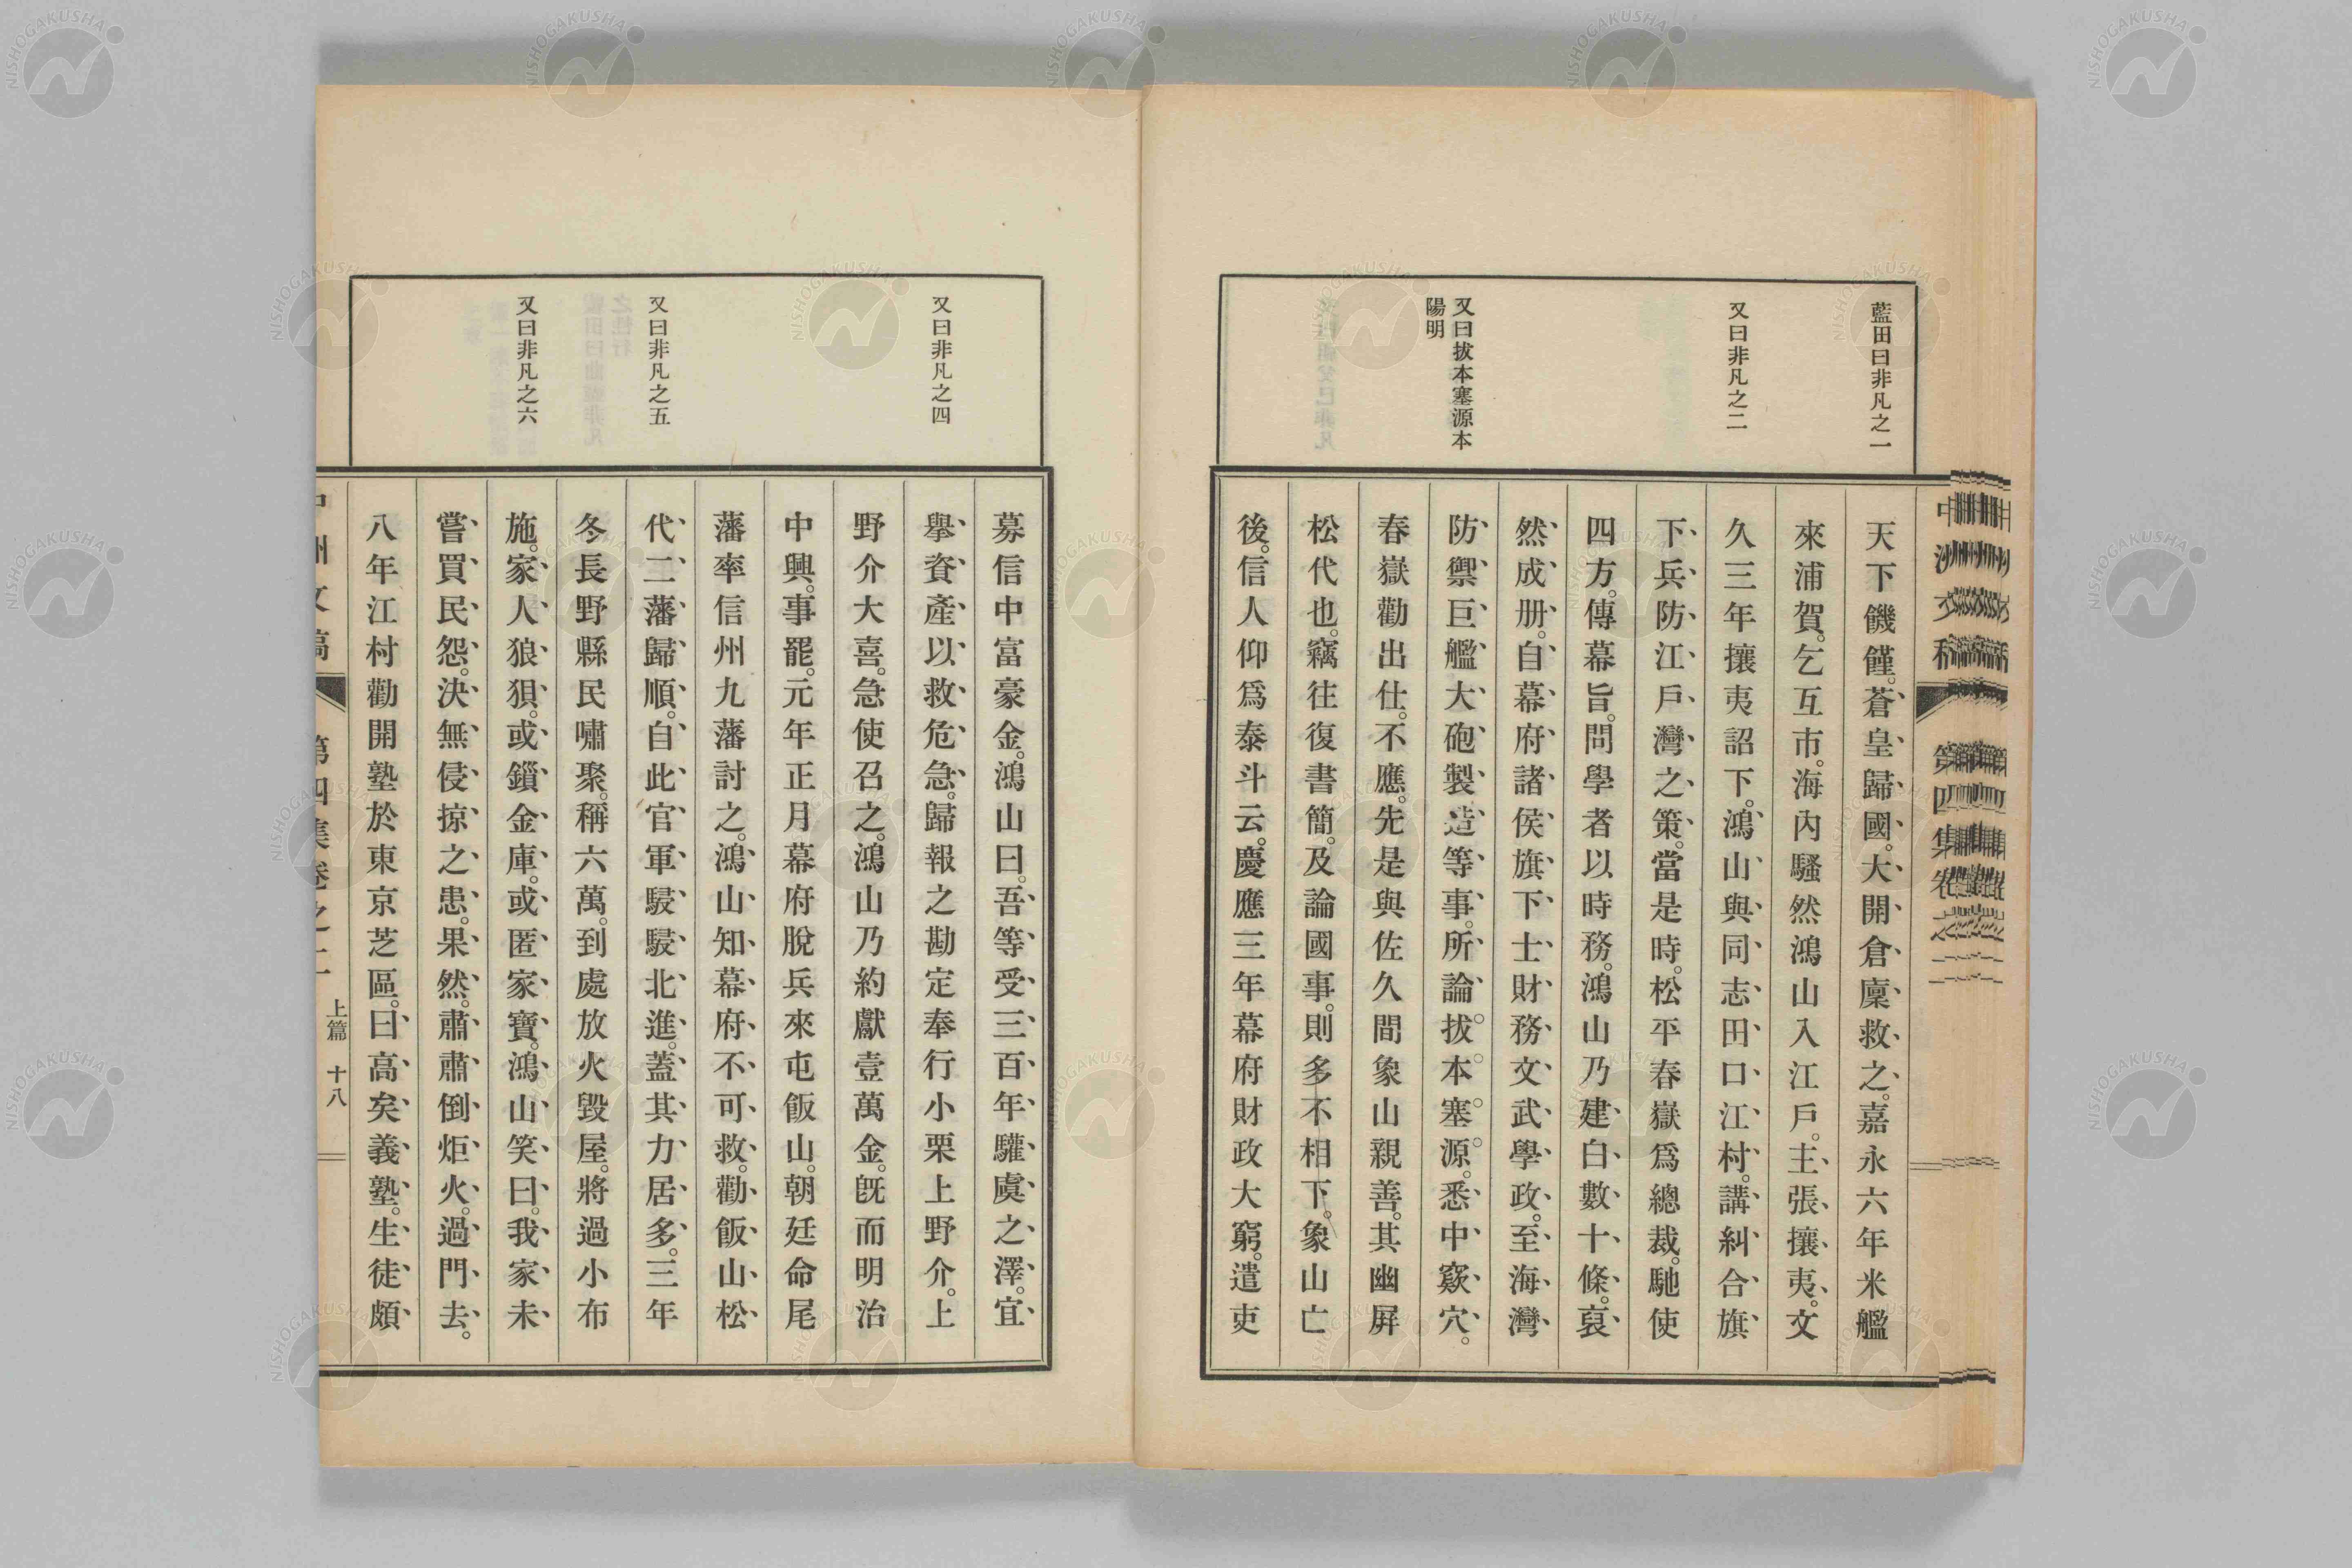 藍田曰非凡之一
又曰非凡之二
又曰拔本塞源本
陽明
天下饑饉。蒼皇歸國。大開倉廩救之。嘉永六年米艦
來浦賀。乞互市。海內騷然鴻山入江戶。主張攘夷。文
久三年攘夷詔下。鴻山與同志田口江村。講糾合旗
下兵防江戶灣之策。當是時。松平春嶽爲總裁。馳使
四方。傳幕旨。問學者以時務。鴻山乃建白數十條。裒
然成册。自幕府諸侯旗下士財務文武學政。至海灣
防禦巨艦大砲製造等事。所論拔本塞源。悉中窾穴。
春嶽勸出仕。不應。先是與佐久間象山親善。其幽屏
松代也。竊往復書簡。及論國事。則多不相下。象山亡
後。信人仰爲泰斗云。慶應三年幕府財政大窮。遣吏
中洲文稿 第四集卷之二
又曰非凡之四
又曰非凡之五
又曰非凡之六
募信中富豪金。鴻山曰。吾等受三百年驩虞之澤。宜
擧資產以救危急。歸報之勘定奉行小栗上野介。上
野介大喜。急使召之。鴻山乃約獻壹萬金。旣而明治
中興。事罷。元年正月幕府脫兵來屯飯山。朝廷命尾
藩率信州九藩討之。鴻山知幕府不可救。勸飯山松
代二藩歸順。自此官軍駸駸北進。蓋其力居多。三年
冬長野縣民嘯聚。稱六萬。到處放火毀屋。將過小布
施。家人狼狽。或鎖金庫。或匿家寶。鴻山笑曰。我家未
嘗買民怨。決無侵掠之患。果然。肅肅倒炬火。過門去。
八年江村勸開塾於東京芝區。曰高矣義塾。生徒頗
中洲文稿 第四集卷之二 上篇 十八